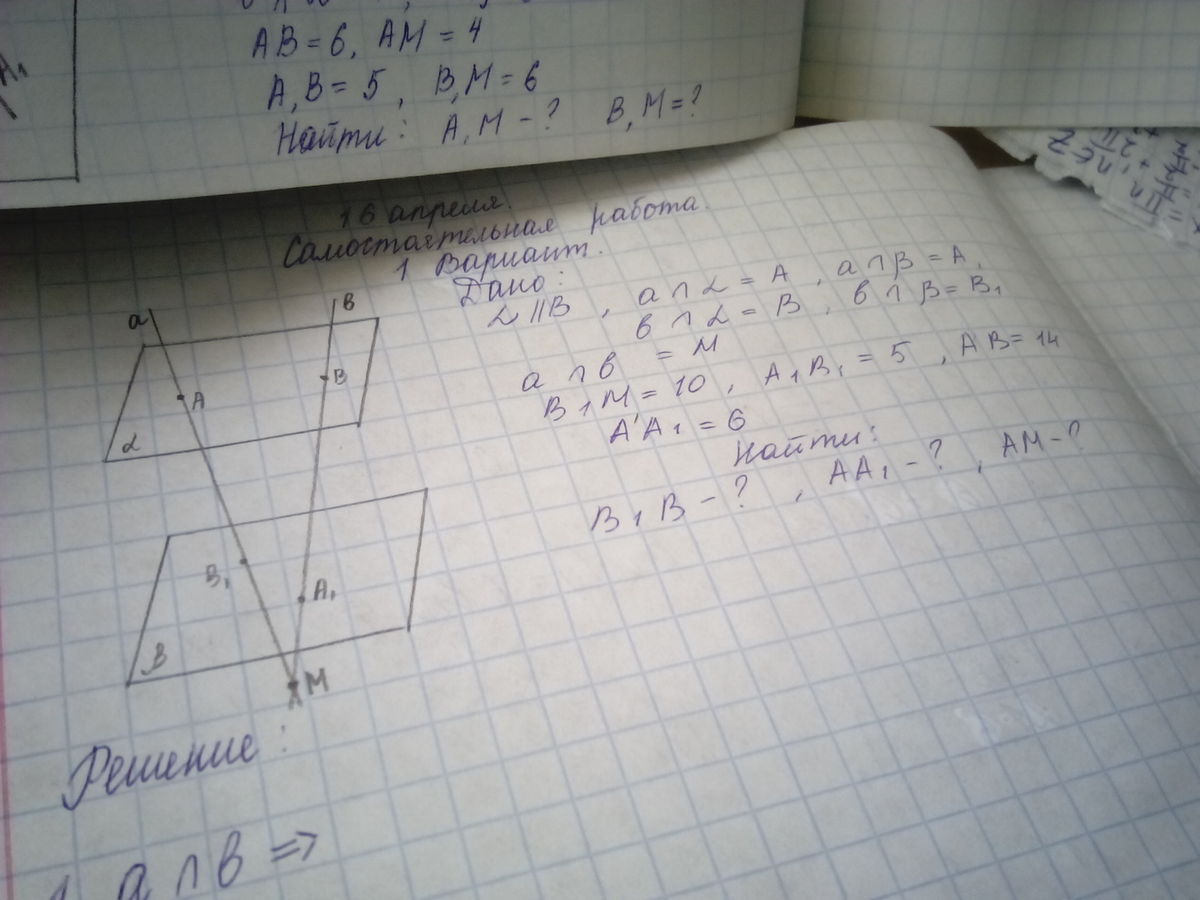 AB = 6, AM = 4
A₁B = 5, B₁M = 6
Найти: A₁M - ? B₁M = ?
A₁
16 апреля.
Самостоятельная работа.
1 Вариант.
Дано:
α || B, a ∩ α = A, a ∩ β = A₁
в ∩ α = B, в ∩ β = B₁
a ∩ в = M
B₁M = 10, A₁B₁ = 5, AB = 14
A'A₁ = 6
Найти:
B₁B - ?, AA₁ - ?, AM - ?
a
B
A
B
α
B₁
A₁
B
M
Решение:
1. a ∩ в =>